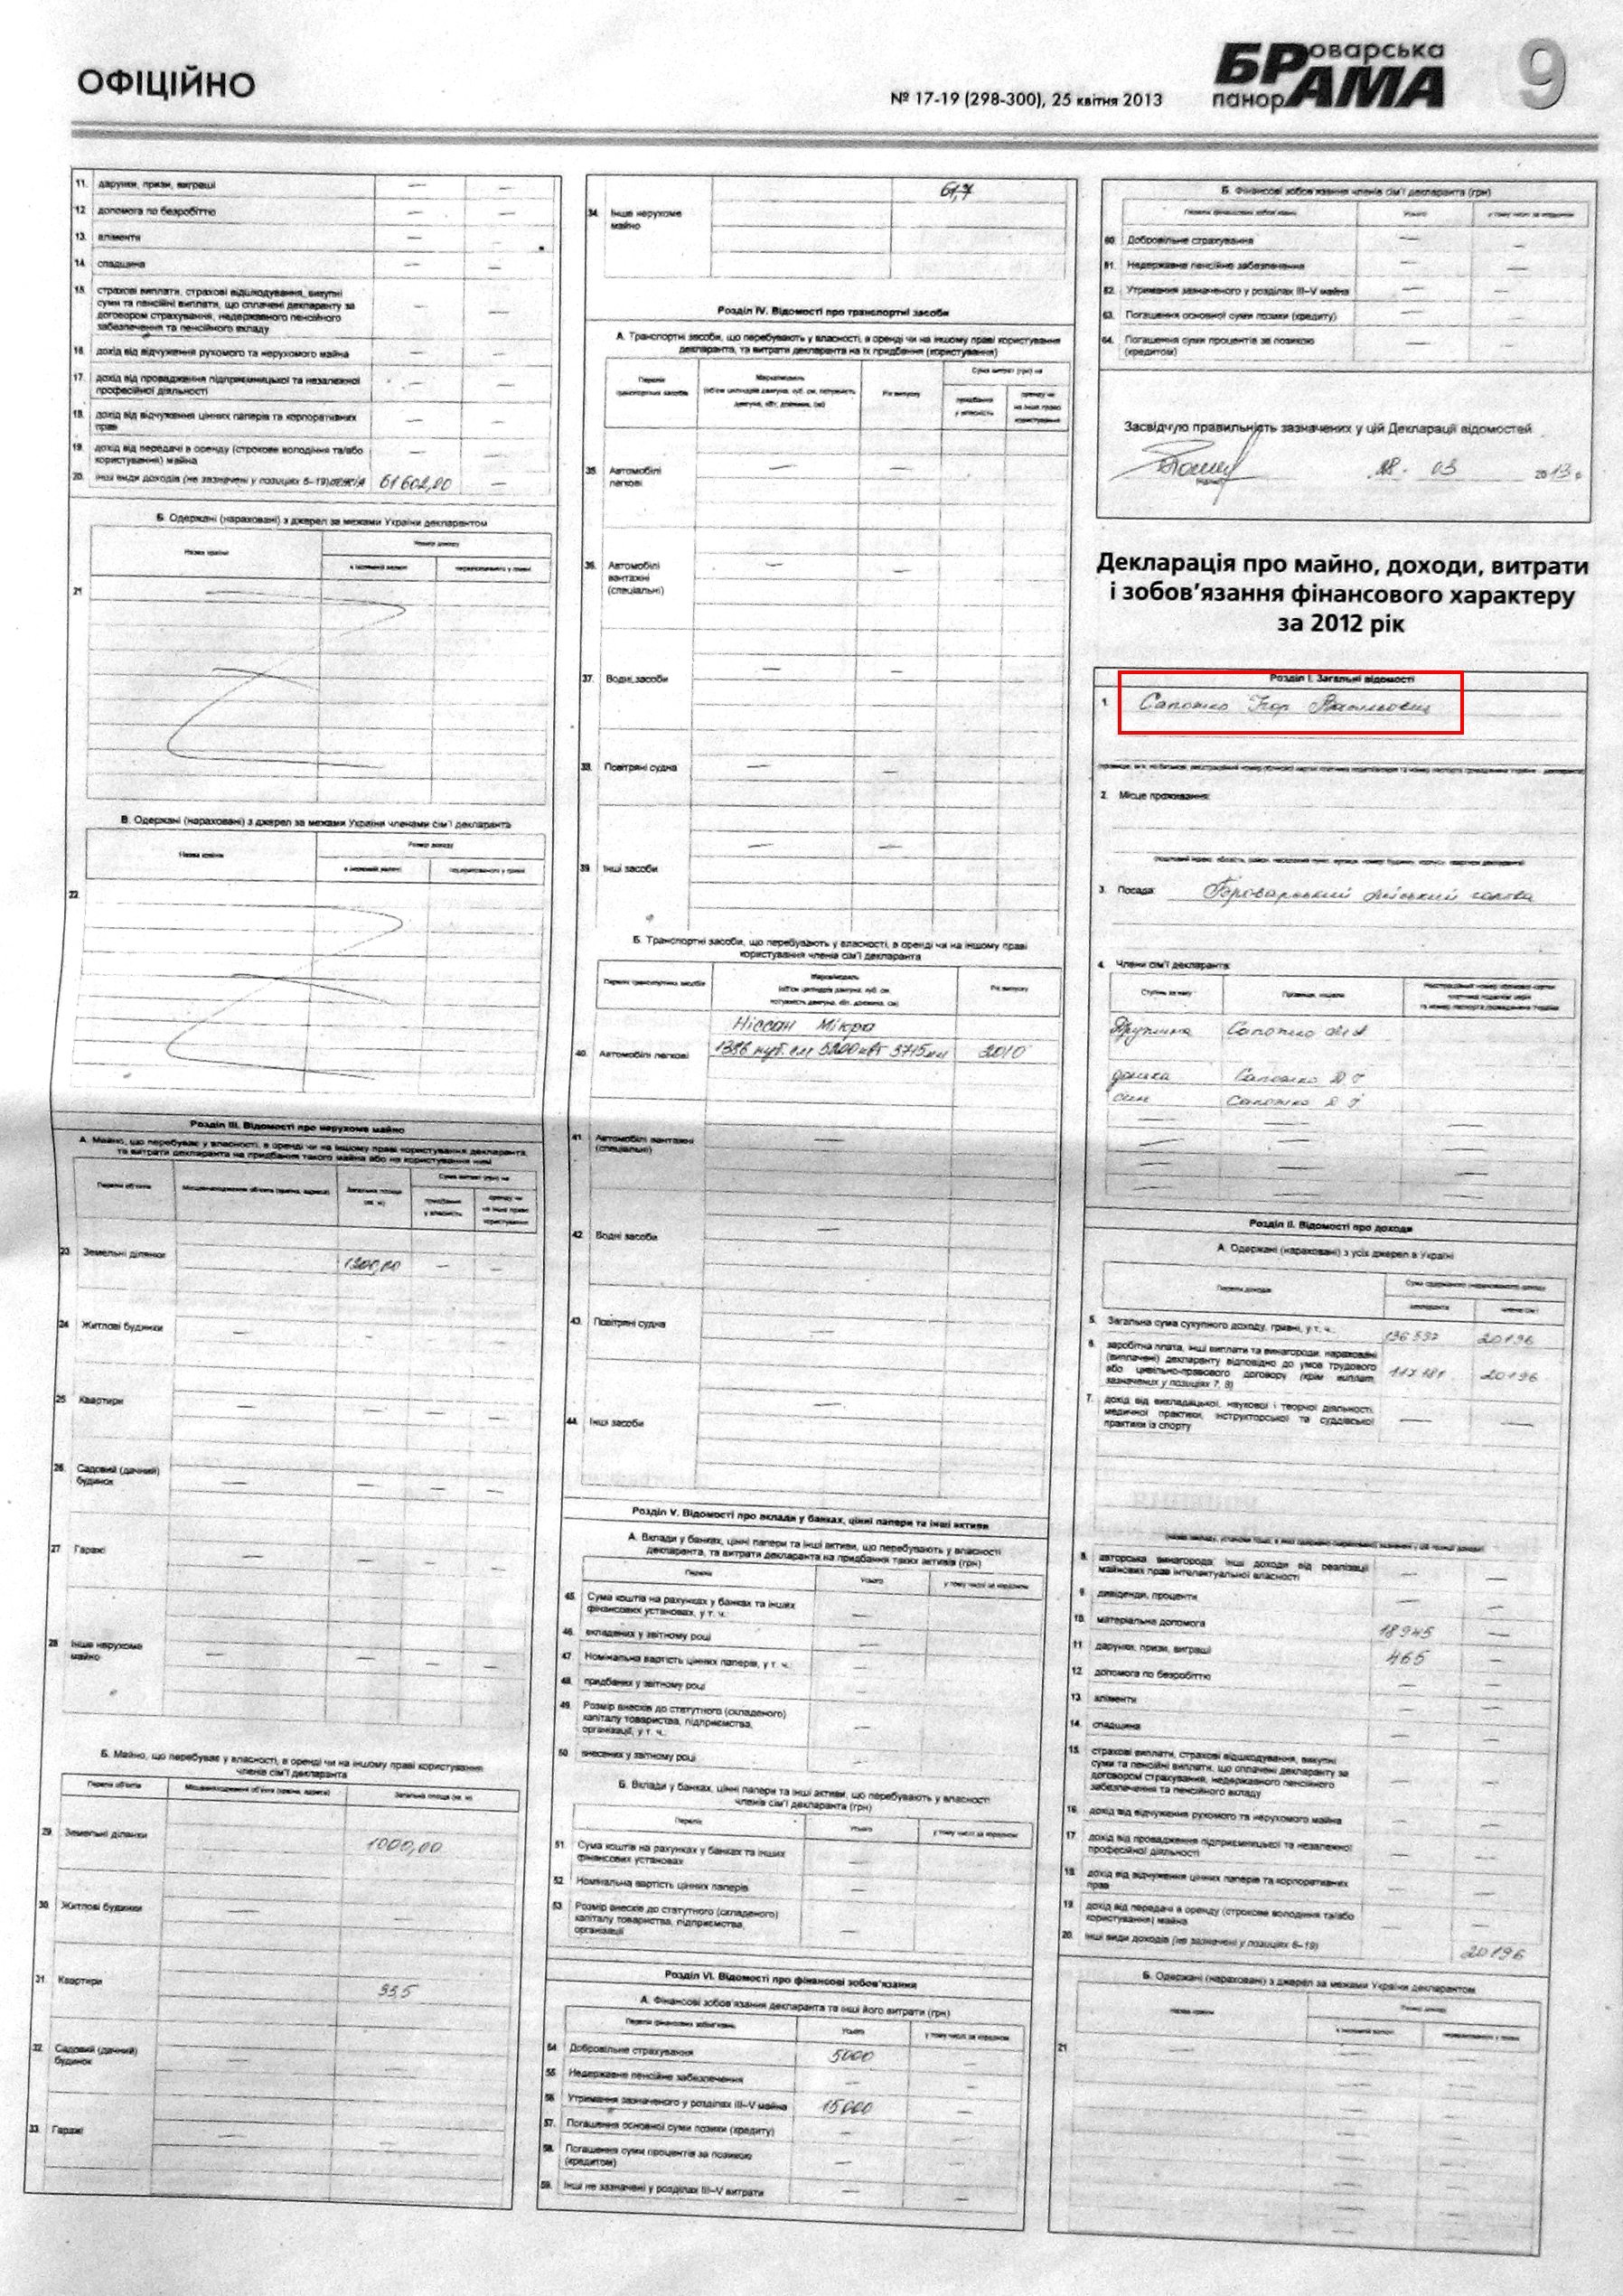 ОФІЦІЙНО
№ 17-19 (298-300), 25 квітня 2013
БРоварська
панорАМА
9
11. дарунки, призи, виграші — —
12. допомога по безробіттю — —
13. аліменти —
14. спадщина — —
15. страхові виплати, страхові відшкодування, викупні
суми та пенсійні виплати, що сплачені декларанту за
договором страхування, недержавного пенсійного
забезпечення та пенсійного вкладу — —
16. дохід від відчуження рухомого та нерухомого майна — —
17. дохід від провадження підприємницької та незалежної
професійної діяльності — —
18. дохід від відчуження цінних паперів та корпоративних
прав — —
19. дохід від передачі в оренду (строкове володіння та/або
користування) майна — —
20. інші види доходів (не зазначені у позиціях 6–19) 61602,00 —
Б. Одержані (нараховані) з джерел за межами України декларантом
Назва країни
Розмір доходу
в іноземній валюті
перерахованого у гривні
21
В. Одержані (нараховані) з джерел за межами України членами сім'ї декларанта
Назва країни
Розмір доходу
в іноземній валюті
перерахованого у гривні
22.
Розділ III. Відомості про нерухоме майно
А. Майно, що перебуває у власності, в оренді чи на іншому праві користування декларанта,
та витрати декларанта на придбання такого майна або на користування ним
Перелік об'єктів
Місцезнаходження об'єкта (країна, адреса)
Загальна площа
(кв. м)
Сума витрат (грн) на
придбання
у власність
оренду чи
на інше право
користування
23. Земельні ділянки 1200,00 — —
24. Житлові будинки — — — —
25. Квартири — — — —
26. Садовий (дачний)
будинок — — — —
27. Гаражі — — — —
28. Інше нерухоме
майно — — — —
Б. Майно, що перебуває у власності, в оренді чи на іншому праві користування
членів сім'ї декларанта
Перелік об'єктів
Місцезнаходження об'єкта (країна, адреса)
Загальна площа (кв. м)
29. Земельні ділянки 1000,00
30. Житлові будинки — —
31. Квартири 93,5
32. Садовий (дачний)
будинок — —
33. Гаражі — —
61,7
34. Інше нерухоме
майно
Розділ IV. Відомості про транспортні засоби
А. Транспортні засоби, що перебувають у власності, в оренді чи на іншому праві користування
декларанта, та витрати декларанта на їх придбання (користування)
Перелік
транспортних засобів
Марка/модель
(об'єм циліндрів двигуна, куб. см, потужність
двигуна, кВт, довжина, см)
Рік випуску
Сума витрат (грн) на
придбання
у власність
оренду чи
на інше право
користування
35. Автомобілі
легкові — — — —
36. Автомобілі
вантажні
(спеціальні) — —
37. Водні засоби — —
38. Повітряні судна — —
39. Інші засоби — —
Б. Транспортні засоби, що перебувають у власності, в оренді чи на іншому праві
користування членів сім'ї декларанта
Перелік транспортних засобів
Марка/модель
(об'єм циліндрів двигуна, куб. см,
потужність двигуна, кВт, довжина, см)
Рік випуску
Ніссан Мікра
40. Автомобілі легкові 1386 куб. см 5200 кВт 3715 мм 2010
41. Автомобілі вантажні
(спеціальні) —
42. Водні засоби —
43. Повітряні судна —
44. Інші засоби —
Розділ V. Відомості про вклади у банках, цінні папери та інші активи
А. Вклади у банках, цінні папери та інші активи, що перебувають у власності
декларанта, та витрати декларанта на придбання таких активів (грн)
Перелік
Усього
у тому числі за кордоном
45. Сума коштів на рахунках у банках та інших
фінансових установах, у т. ч.: —
46. вкладених у звітному році —
47. Номінальна вартість цінних паперів, у т. ч.: —
48. придбаних у звітному році —
49. Розмір внесків до статутного (складеного)
капіталу товариства, підприємства,
організації, у т. ч.: —
50. внесених у звітному році —
Б. Вклади у банках, цінні папери та інші активи, що перебувають у власності
членів сім'ї декларанта (грн)
Перелік
Усього
у тому числі за кордоном
51. Сума коштів на рахунках у банках та інших
фінансових установах —
52. Номінальна вартість цінних паперів —
53. Розмір внесків до статутного (складеного)
капіталу товариства, підприємства,
організації —
Розділ VI. Відомості про фінансові зобов'язання
А. Фінансові зобов'язання декларанта та інші його витрати (грн)
Перелік фінансових зобов'язань
Усього
у тому числі за кордоном
54. Добровільне страхування 5000 —
55. Недержавне пенсійне забезпечення — —
56. Утримання зазначеного у розділах III–V майна 15000 —
57. Погашення основної суми позики (кредиту) — —
58. Погашення суми процентів за позикою
(кредитом) — —
59. Інші не зазначені у розділах III–V витрати — —
Б. Фінансові зобов'язання членів сім'ї декларанта (грн)
Перелік фінансових зобов'язань
Усього
у тому числі за кордоном
60. Добровільне страхування — —
61. Недержавне пенсійне забезпечення — —
62. Утримання зазначеного у розділах III–V майна — —
63. Погашення основної суми позики (кредиту) — —
64. Погашення суми процентів за позикою
(кредитом) — —
Засвідчую правильність зазначених у цій Декларації відомостей
28. 03 2013
(підпис)
Декларація про майно, доходи, витрати
і зобов'язання фінансового характеру
за 2012 рік
Розділ I. Загальні відомості
1. Сапожко Ігор Васильович
2. Місце проживання:
3. Посада: Броварський міський голова
4. Члени сім'ї декларанта:
Ступінь зв'язку
Прізвище, ініціали
Реєстраційний номер облікової картки
платника податків/серія
та номер паспорта громадянина України
Дружина Сапожко
дочка Сапожко
син Сапожко
Розділ II. Відомості про доходи
А. Одержані (нараховані) з усіх джерел в Україні
Перелік доходів
Сума одержаного (нарахованого) доходу
декларанта
членів сім'ї
5. Загальна сума сукупного доходу, гривні, у т. ч.: 136597 20196
6. заробітна плата, інші виплати та винагороди, нараховані
(виплачені) декларанту відповідно до умов трудового
або цивільно-правового договору (крім виплат,
зазначених у позиціях 7, 8) 117181 20196
7. дохід від викладацької, наукової і творчої діяльності,
медичної практики, інструкторської та суддівської
практики із спорту — —
8. авторська винагорода, інші доходи від реалізації
майнових прав інтелектуальної власності — —
9. дивіденди, проценти — —
10. матеріальна допомога 18945 —
11. дарунки, призи, виграші 465 —
12. допомога по безробіттю — —
13. аліменти — —
14. спадщина — —
15. страхові виплати, страхові відшкодування, викупні
суми та пенсійні виплати, що сплачені декларанту за
договором страхування, недержавного пенсійного
забезпечення та пенсійного вкладу — —
16. дохід від відчуження рухомого та нерухомого майна — —
17. дохід від провадження підприємницької та незалежної
професійної діяльності — —
18. дохід від відчуження цінних паперів та корпоративних
прав — —
19. дохід від передачі в оренду (строкове володіння та/або
користування) майна — —
20. інші види доходів (не зазначені у позиціях 6–19) 20196
Б. Одержані (нараховані) з джерел за межами України декларантом
Назва країни
Розмір доходу
в іноземній валюті
перерахованого у гривні
21